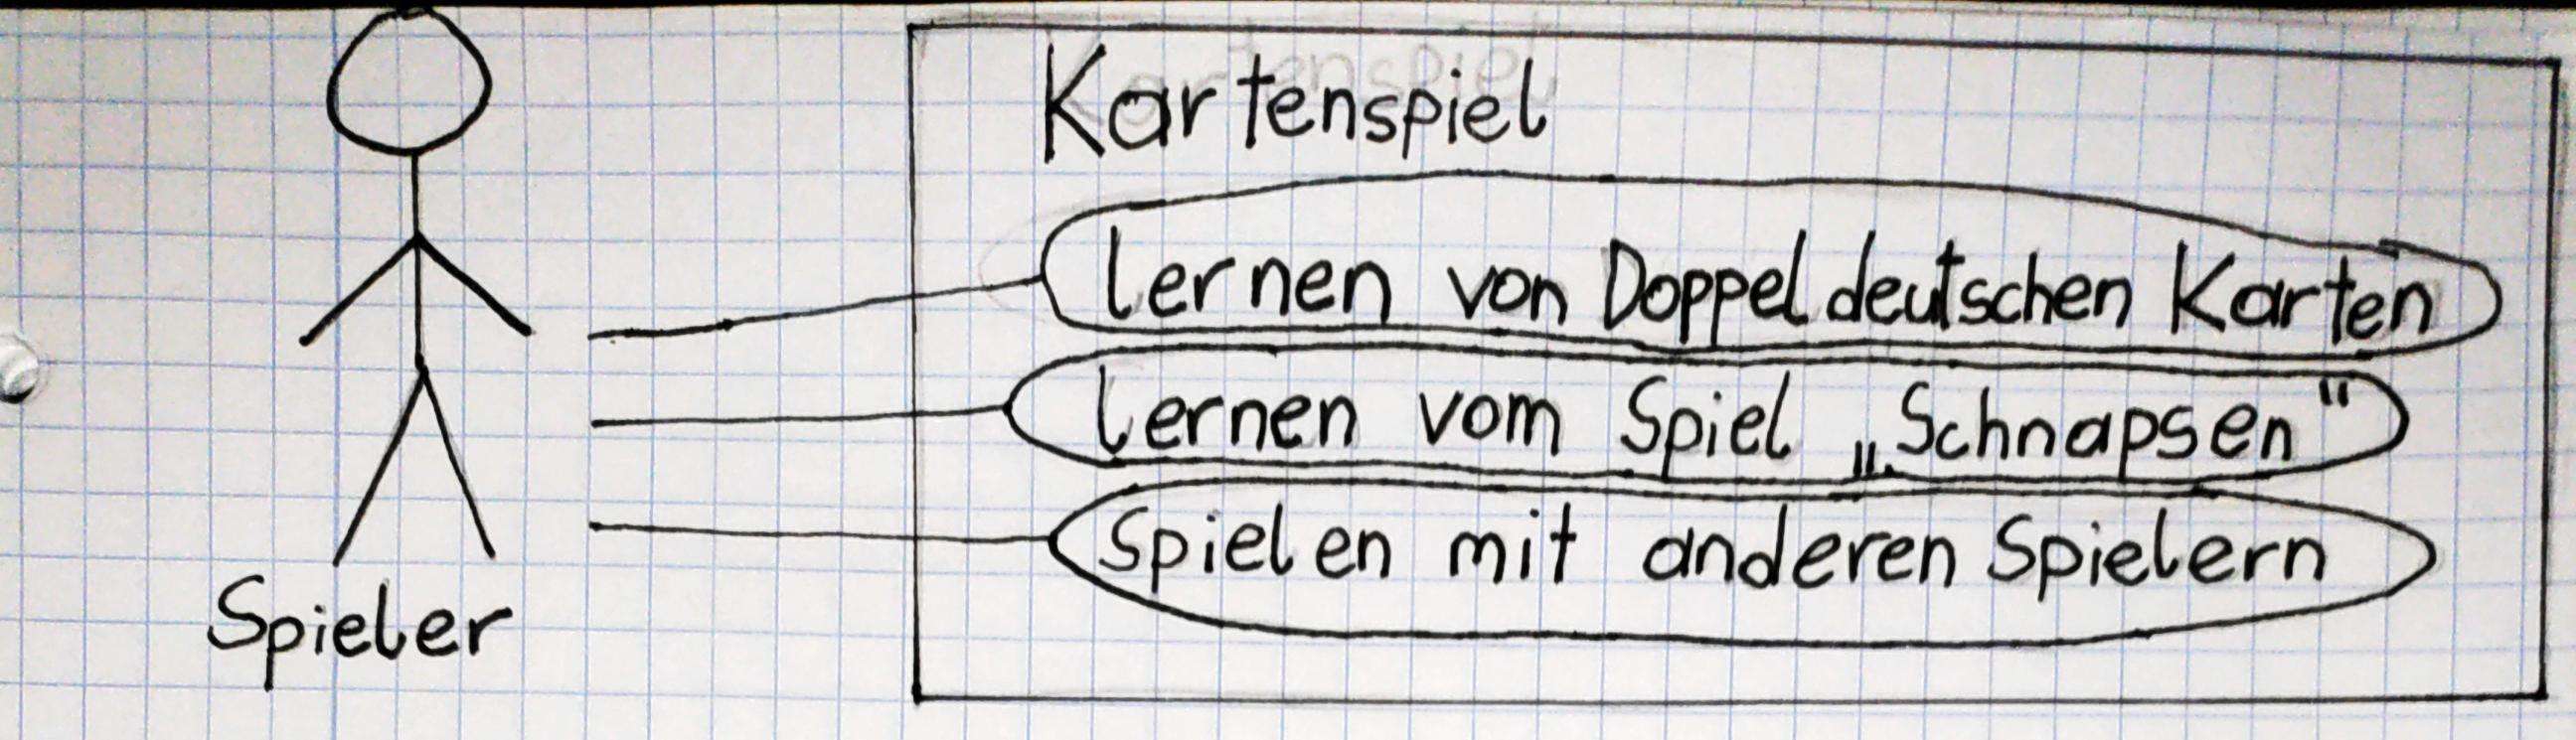 Kartenspiel
lernen von Doppeldeutschen Karten
lernen vom Spiel „Schnapsen“
spielen mit anderen Spielern
Spieler